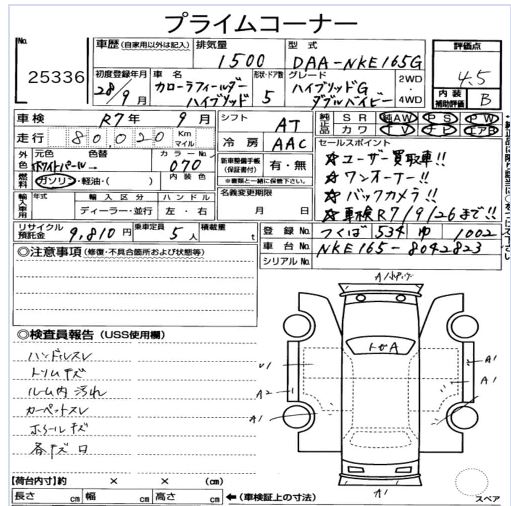 プライムコーナー
No.
25336
車歴 (自家用以外は記入) 排気量 型式
1500 DAA-NKE165G
評価点
4.5
内装補助評価 B
初度登録年月 車名 形状・ドア数 グレード 2WD・4WD
28/9月 カローラフィールダーハイブリッド 5 ハイブリッドG ダブルバイビー
車検 R7年 9月 シフト AT
純正品 SR 純AW PS PW
カワ TV ナビ エアB
走行 80,020 Km マイル 冷房 AAC
セールスポイント
☆ユーザー買取車!!
☆ワンオーナー!!
☆バックカメラ!!
☆車検R7/9/26まで!!
外色 元色 色替 カラーNo.
ホワイトパール 070
新車整備手帳(保証書付) 有・無
燃料 ガソリン・軽油・( ) 内装色
名義変更期限
月 日
輸入車用 年式 輸入区分 ハンドル
ディーラー・並行 左・右
リサイクル預託金 9,810円 乗車定員 5人 積載量 t
登録No. つくば 534 ゆ 1002
車台No. NKE165-8042823
シリアルNo.
◎注意事項 (修復・不具合箇所および状態等)
◎検査員報告 (USS使用欄)
ハンドルスレ
トリムキズ
ルーム内汚れ
カーペットスレ
ホイールキズ
各キズ凹
トびA
U1
A2
A1
A1
A1
A1
A1
【荷台内寸】約 × × (cm)
長さ cm 幅 cm 高さ cm ←(車検証上の寸法)
スペア